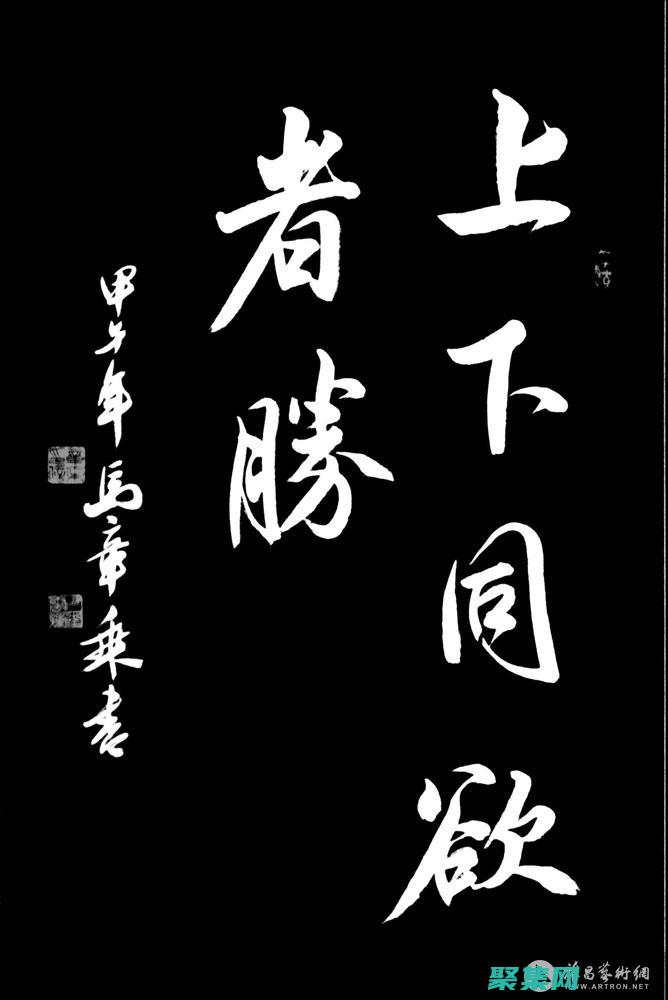 上下同欲
者勝
甲午年馬章乘書
昌藝術網
WWW.ARTRON.NET
聚集网